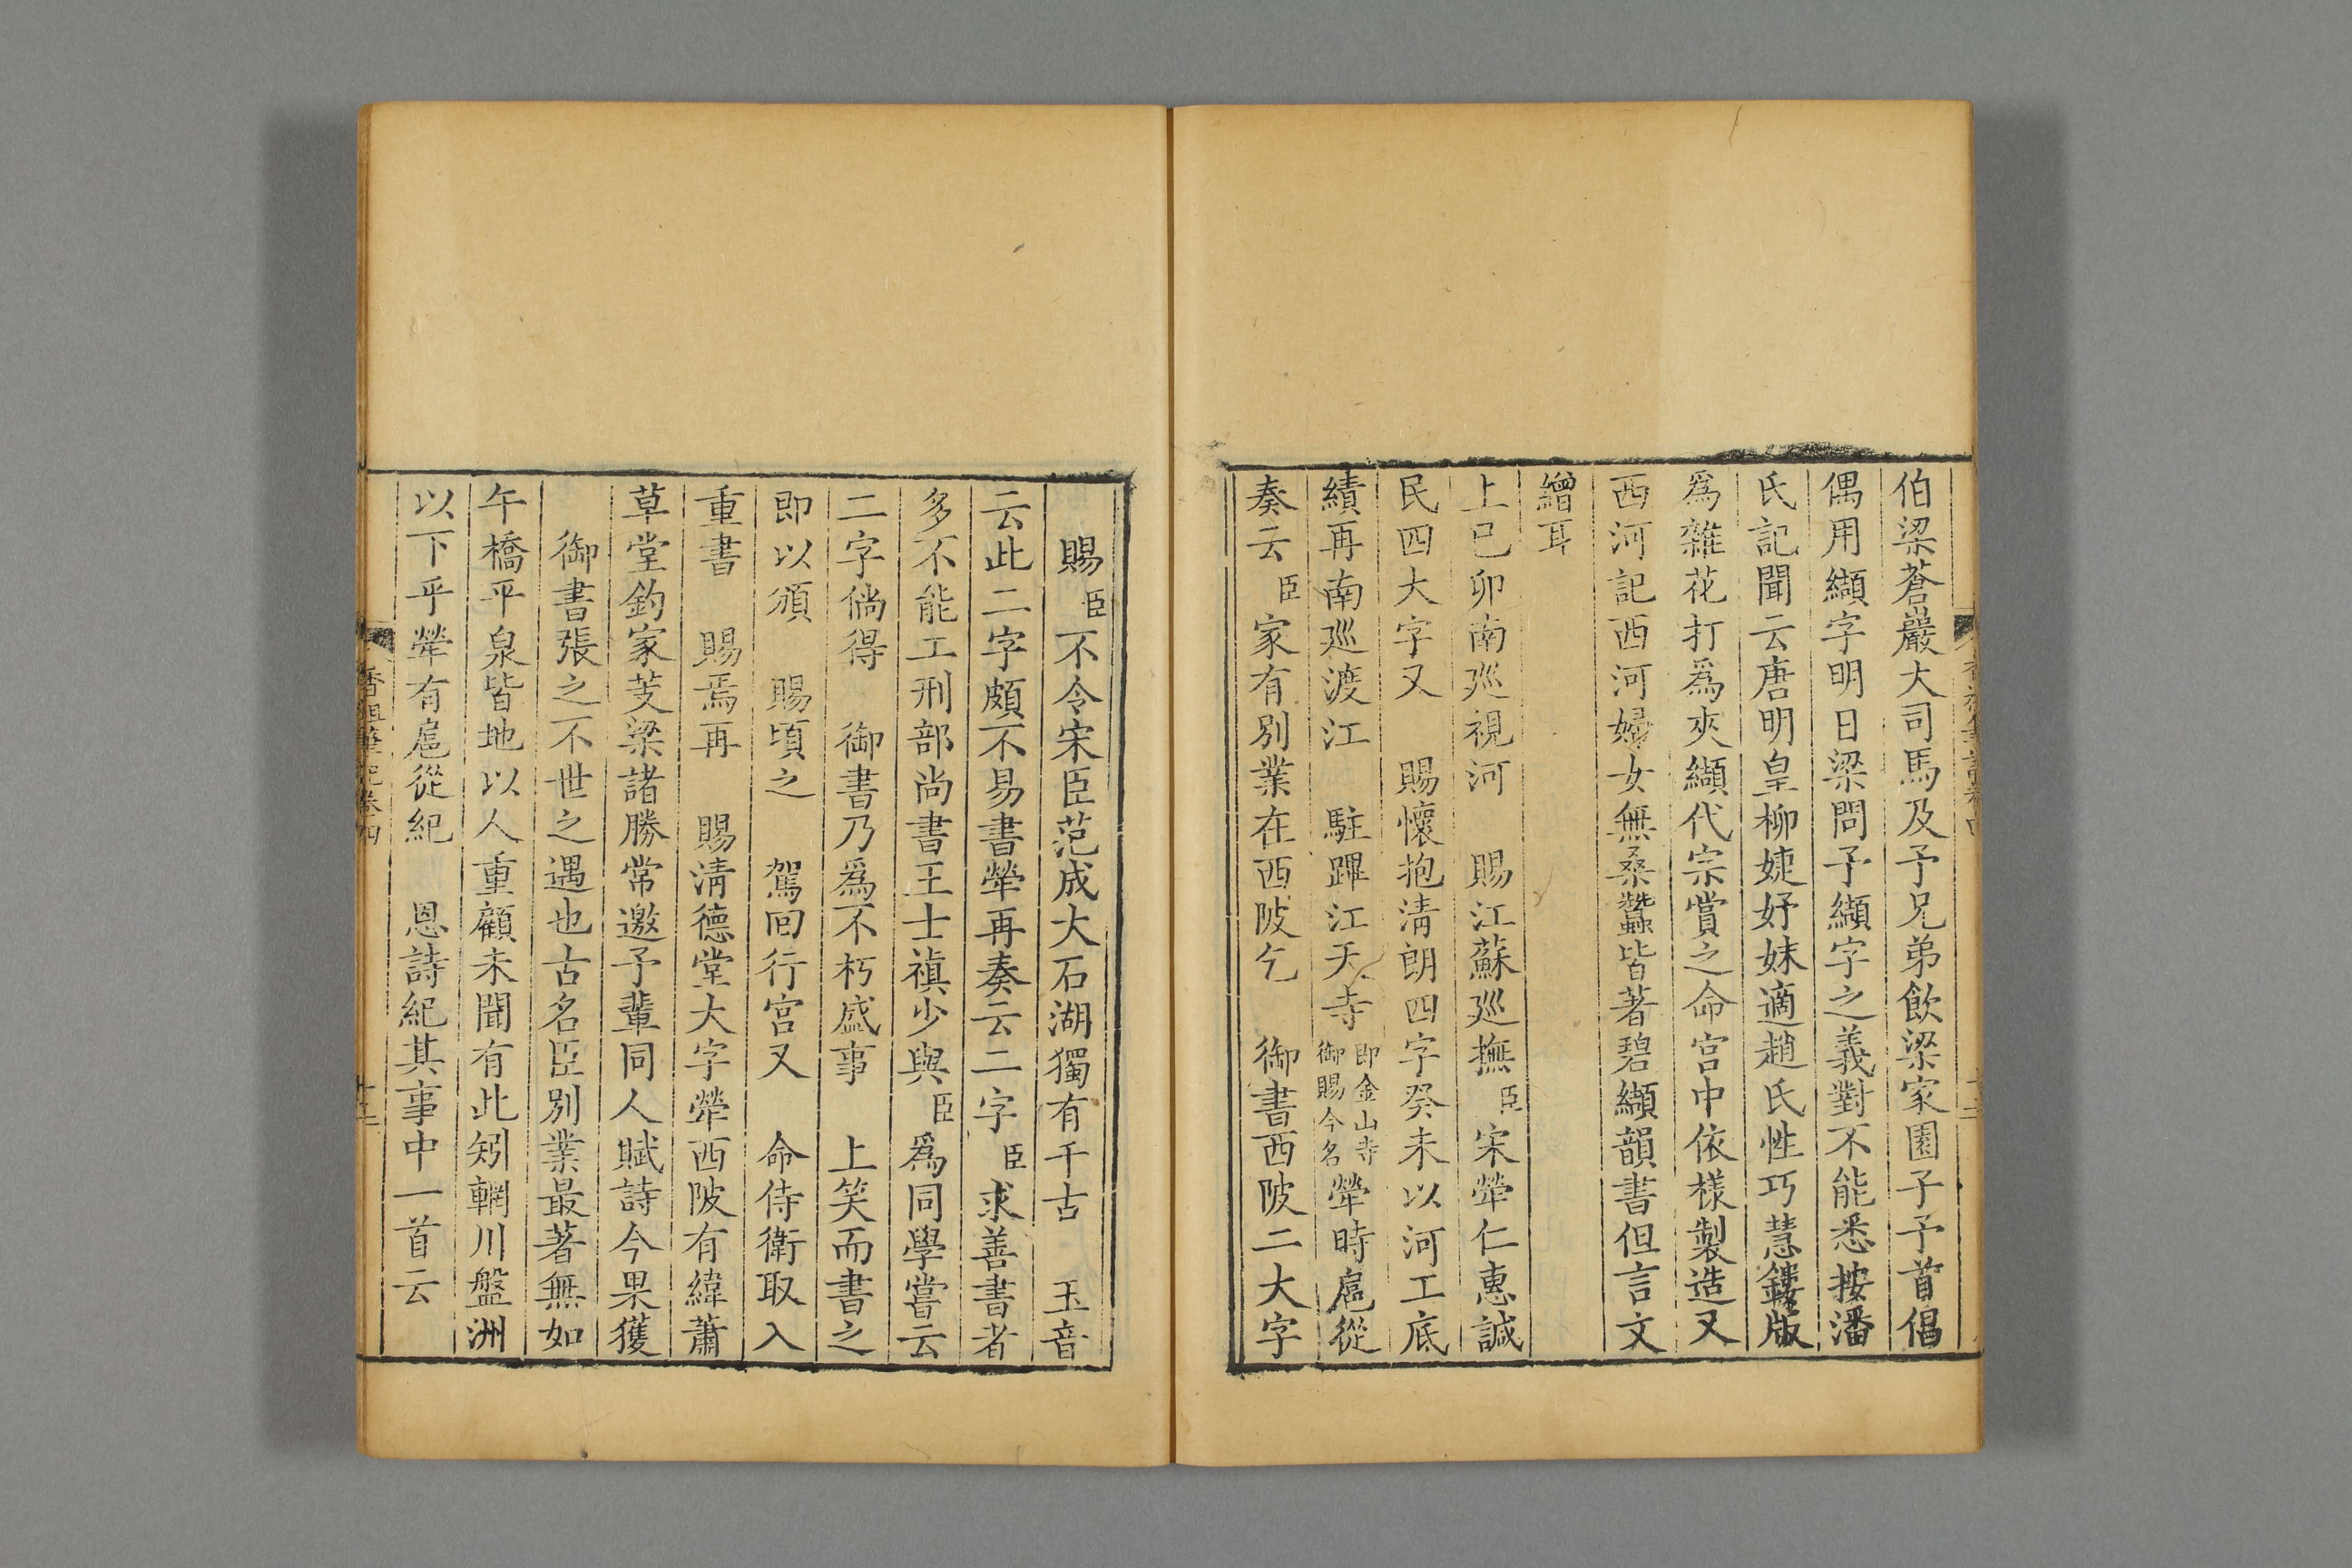 伯梁蒼巖大司馬及予兄弟飲梁家園子予首倡
偶用纈字明日梁問予纈字之義對不能悉按潘
氏記聞云唐明皇柳婕妤妹適趙氏性巧慧鏤版
爲雜花打爲夾纈代宗賞之命宮中依樣製造又
西河記西河婦女無桑蠶皆著碧纈韻書但言文
繒耳
上巳卯南巡視河　賜江蘇巡撫臣宋犖仁惠誠
民四大字又　賜懷抱清朗四字癸未以河工底
績再南巡渡江　駐蹕江天寺即金山寺御賜今名犖時扈從
奏云臣家有別業在西陂乞　御書西陂二大字
賜臣不令宋臣范成大石湖獨有千古　玉音
云此二字頗不易書犖再奏云二字臣求善書者
多不能工刑部尚書王士禛少與臣爲同學嘗云
二字倘得　御書乃爲不朽盛事　上笑而書之
即以頒　賜頃之　駕回行宮又　命侍衛取入
重書　賜焉再　賜清德堂大字犖西陂有緯蕭
草堂釣家芰梁諸勝常邀予輩同人賦詩今果獲
御書張之不世之遇也古名臣別業最著無如
午橋平泉皆地以人重顧未聞有此矧輞川盤洲
以下乎犖有扈從紀　恩詩紀其事中一首云
香祖筆記卷四